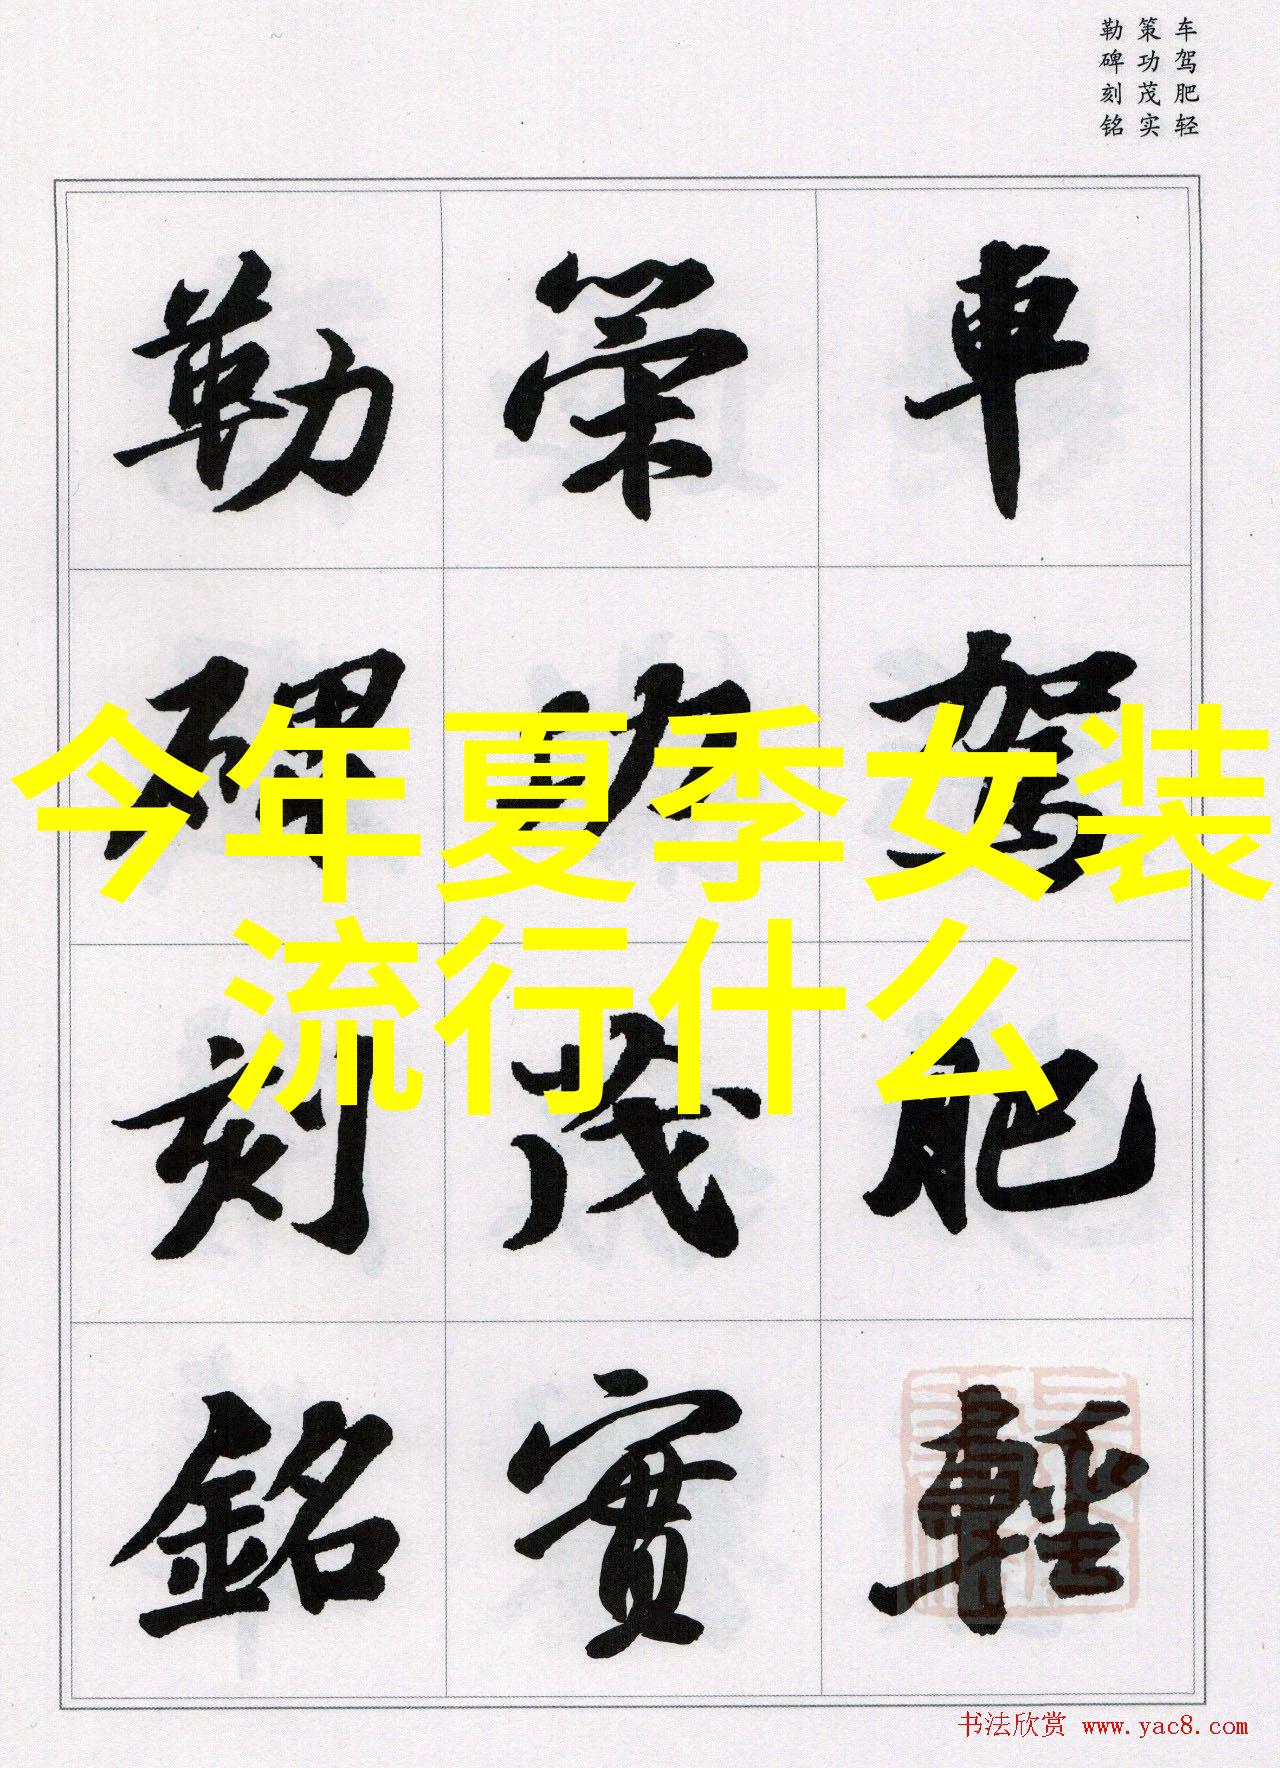 车驾肥轻
策功茂实
勒碑刻铭
車駕肥輕
策功茂實
勒碑刻銘
今年夏季女装
流行什么
书法欣赏 www.yac8.com